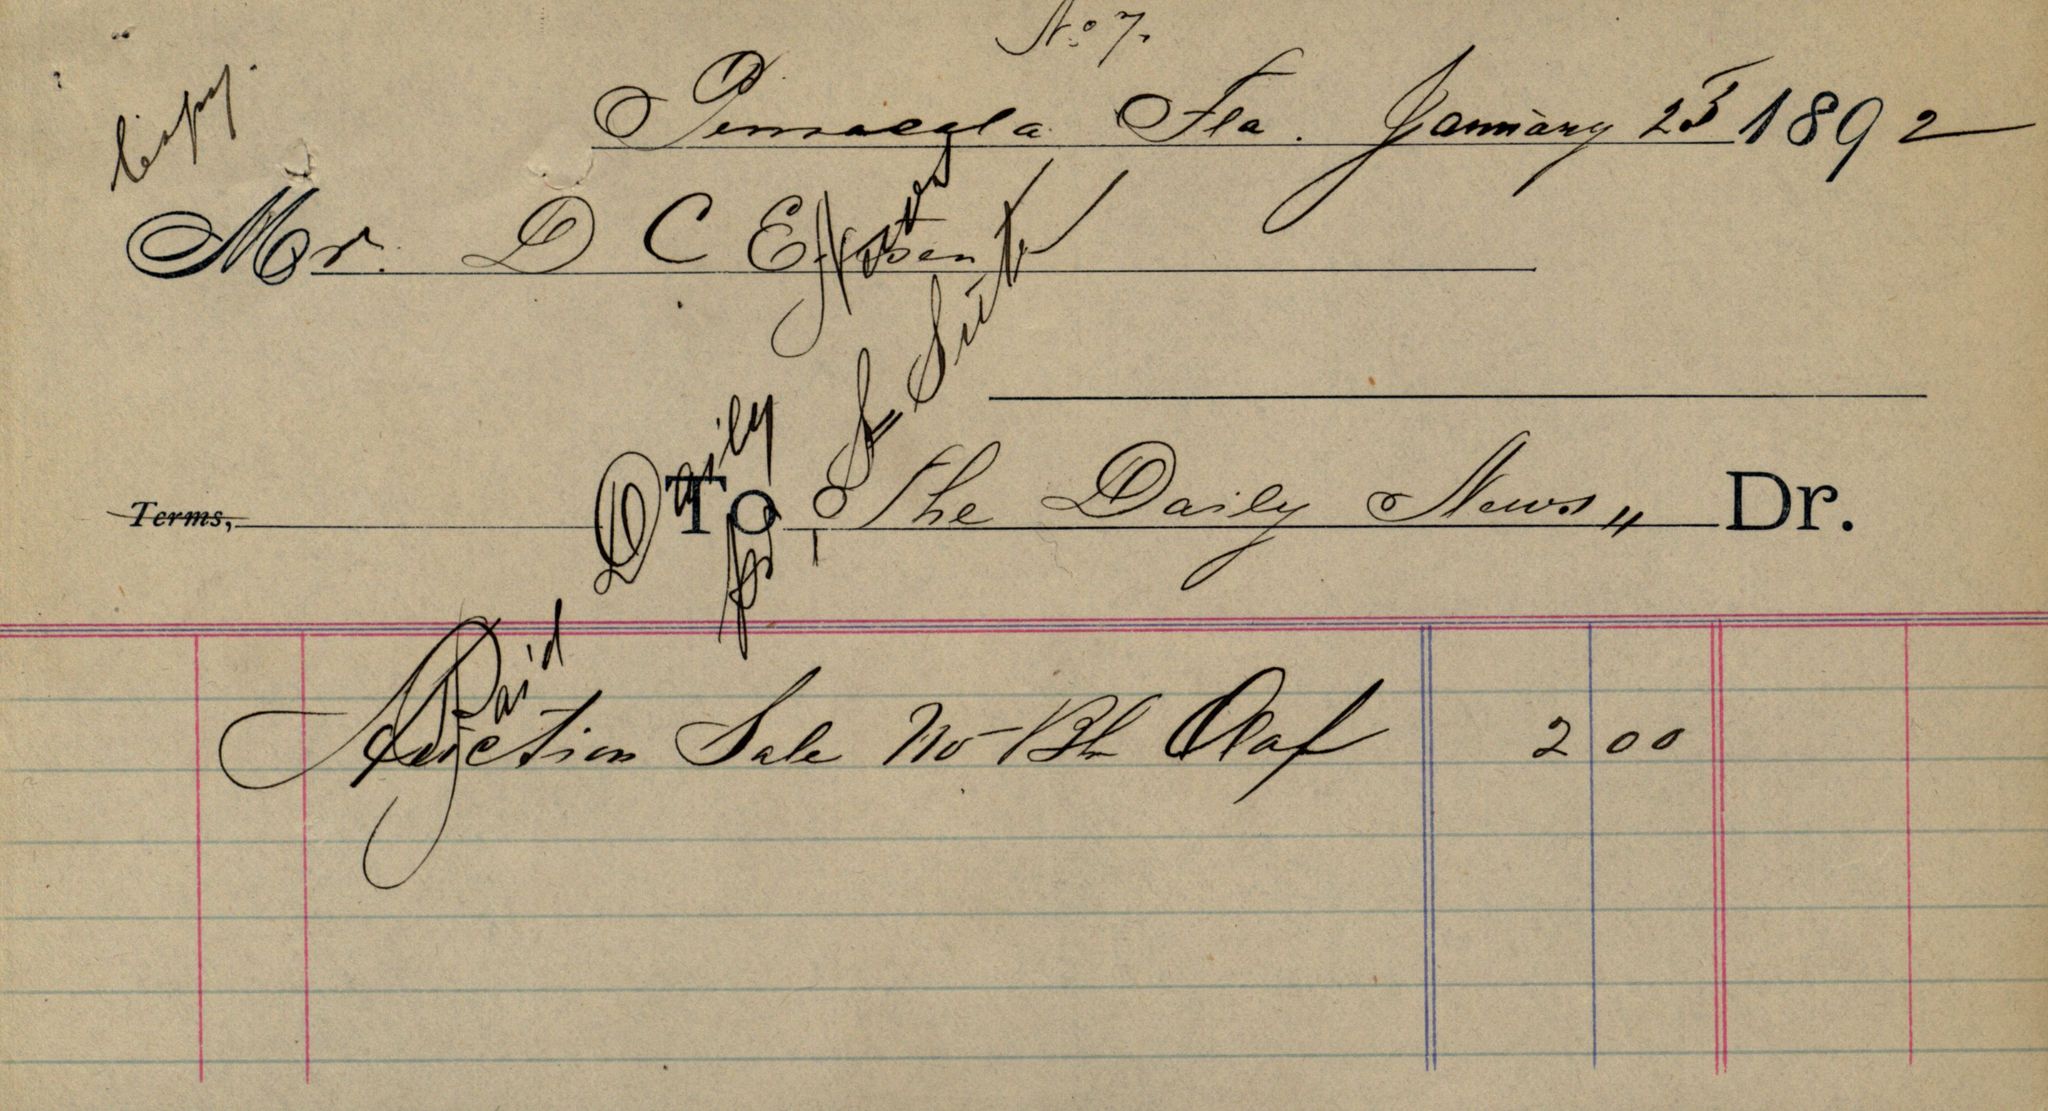 No. 7.
Copy.
Pensacola Fla. January 25 1892
Mr. D C E
To The Daily News „ Dr.
Terms,
Paid Daily News
pr L Suter
Auction Sale No Bk Olaf 2 00